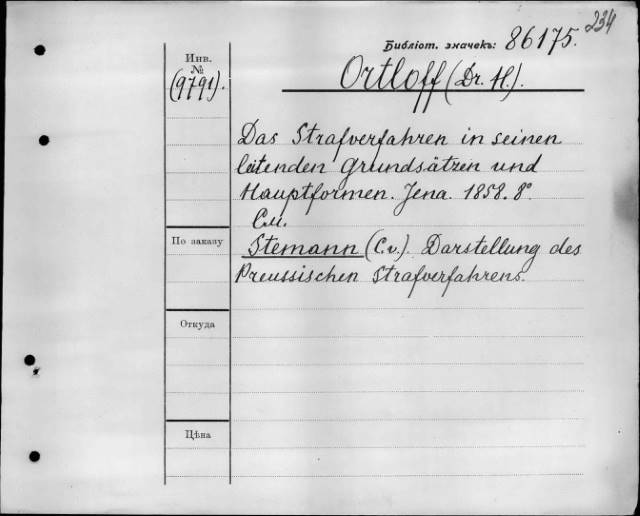 234
Библіот. значекъ: 86175.
Инв.
№
(9791).
Ortloff (Dr. H.).
Das Strafverfahren in seinen
leitenden Grundsätzen und
Hauptformen. Jena. 1858. 8°
См.
По заказу
Stemann (C. v.). Darstellung des
Preussischen Strafverfahrens.
Откуда
Цѣна